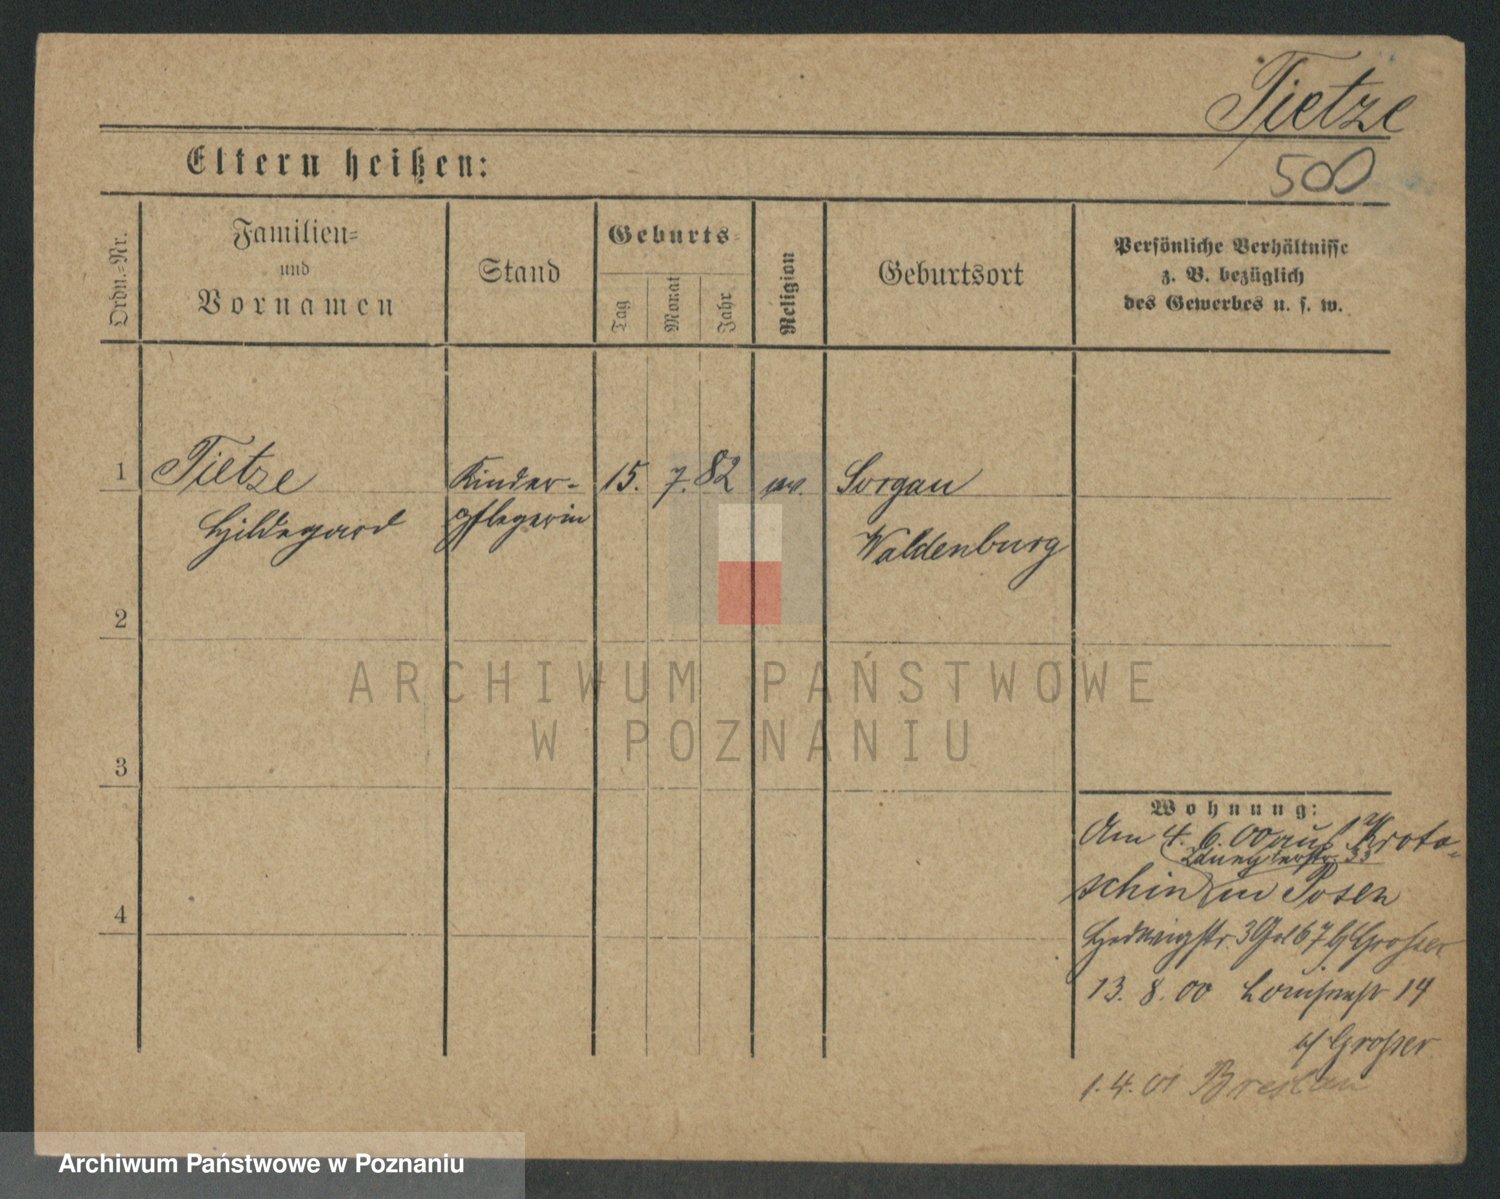 Tietze
500
Eltern heißen:
Ordn.=Nr.
Familien=
und
Vornamen
Stand
Geburts=
Tag
Monat
Jahr
Religion
Geburtsort
Persönliche Verhältnisse
z. B. bezüglich
des Gewerbes u. s. w.
1 Tietze Kinder- 15. 7. 82 ev. Sorgau
Hildegard pflegerin Waldenburg
2
3
4
ARCHIWUM PAŃSTWOWE
W POZNANIU
Wohnung:
Am 4. 6. 00 aus Kroto-
33
schin in Posen
Hedwigstr. 3 67 Grosser
13. 8. 00 14
b/ Grosser
1. 4. 01 Breslau
Archiwum Państwowe w Poznaniu